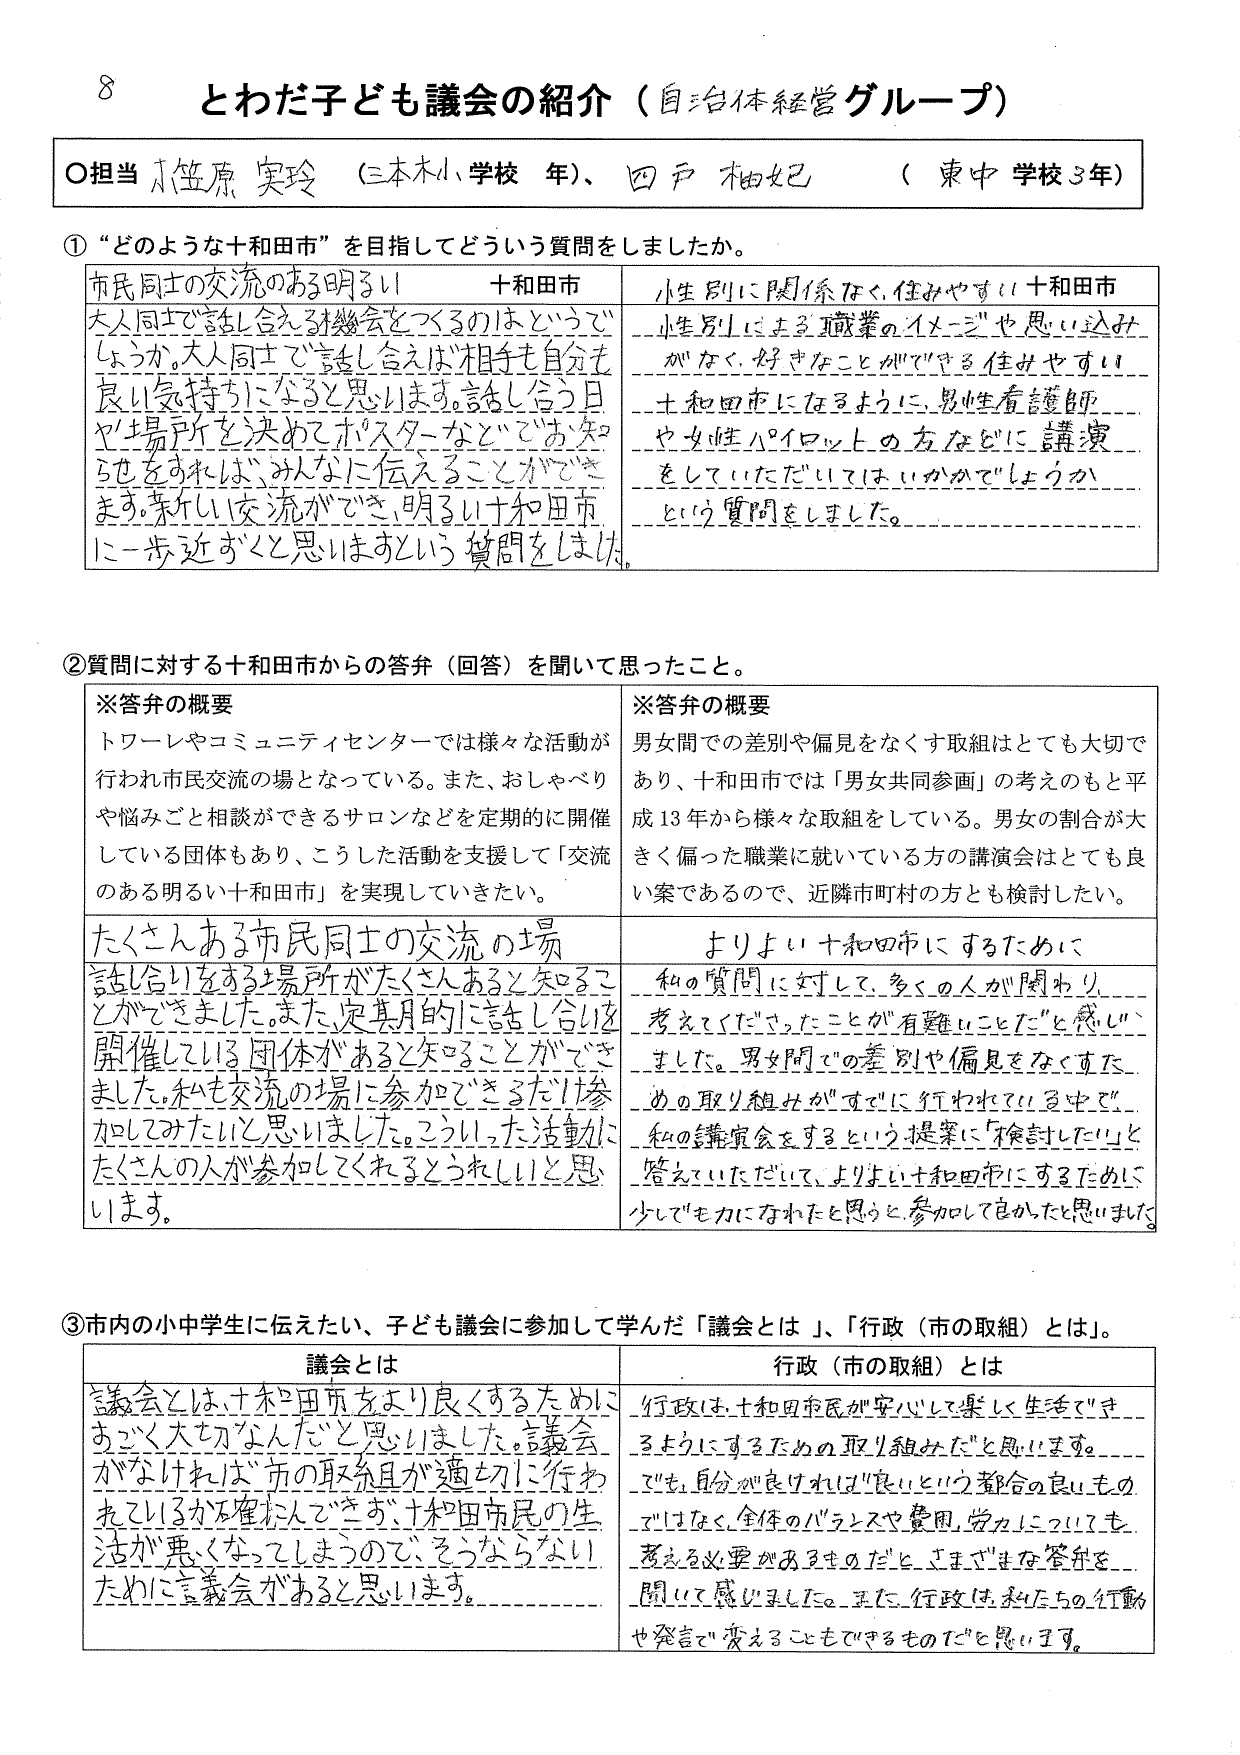 8
とわだ子ども議会の紹介（自治体経営グループ）
〇担当 小笠原 実玲 （三本木小 学校 年）、 四戸 柚妃 （ 東中 学校 3年）
①“どのような十和田市”を目指してどういう質問をしましたか。
市民同士の交流のある明るい 十和田市
大人同士で話し合える機会をつくるのはどうで
しょうか。大人同士で話し合えば相手も自分も
良い気持ちになると思います。話し合う日
や場所を決めてポスターなどでお知
らせをすれば、みんなに伝えることができ
ます。新しい交流ができ、明るい十和田市
に一歩近ずくと思いますという質問をしました。
性別に関係なく、住みやすい 十和田市
性別による職業のイメージや思い込み
がなく、好きなことができる住みやすい
十和田市になるように、男性看護師
や女性パイロットの方などに講演
をしていただいてはいかがでしょうか
という質問をしました。
②質問に対する十和田市からの答弁（回答）を聞いて思ったこと。
※答弁の概要
トワーレやコミュニティセンターでは様々な活動が
行われ市民交流の場となっている。また、おしゃべり
や悩みごと相談ができるサロンなどを定期的に開催
している団体もあり、こうした活動を支援して「交流
のある明るい十和田市」を実現していきたい。
たくさんある市民同士の交流の場
話し合いをする場所がたくさんあると知るこ
とができました。また、定期的に話し合いを
開催している団体があると知ることができ
ました。私も交流の場に参加できるだけ参
加してみたいと思いました。こういった活動に
たくさんの人が参加してくれるとうれしいと思
います。
※答弁の概要
男女間での差別や偏見をなくす取組はとても大切で
あり、十和田市では「男女共同参画」の考えのもと平
成 13 年から様々な取組をしている。男女の割合が大
きく偏った職業に就いている方の講演会はとても良
い案であるので、近隣市町村の方とも検討したい。
よりよい十和田市にするために
私の質問に対して、多くの人が関わり、
考えてくださったことが有難いことだと感じ
ました。男女間での差別や偏見をなくすた
めの取り組みがすでに行われている中で
私の講演会をするという提案に「検討したい」と
答えていただいて、よりよい十和田市にするために
少しでも力になれたと思うと、参加して良かったと思いました。
③市内の小中学生に伝えたい、子ども議会に参加して学んだ「議会とは 」、「行政（市の取組）とは」。
議会とは
議会とは、十和田市をより良くするために
すごく大切なんだと思いました。議会
がなければ市の取組が適切に行わ
れているか確にんできず、十和田市民の生
活が悪くなってしまうので、そうならない
ために議会があると思います。
行政（市の取組）とは
行政は、十和田市民が安心して楽しく生活でき
るようにするための取り組みだと思います。
でも、自分が良ければ良いという都合の良いもの
ではなく、全体のバランスや費用、労力についても
考える必要があるものだと、さまざまな答弁を
聞いて感じました。また、行政は、私たちの行動
や発言で変えることもできるものだと思います。